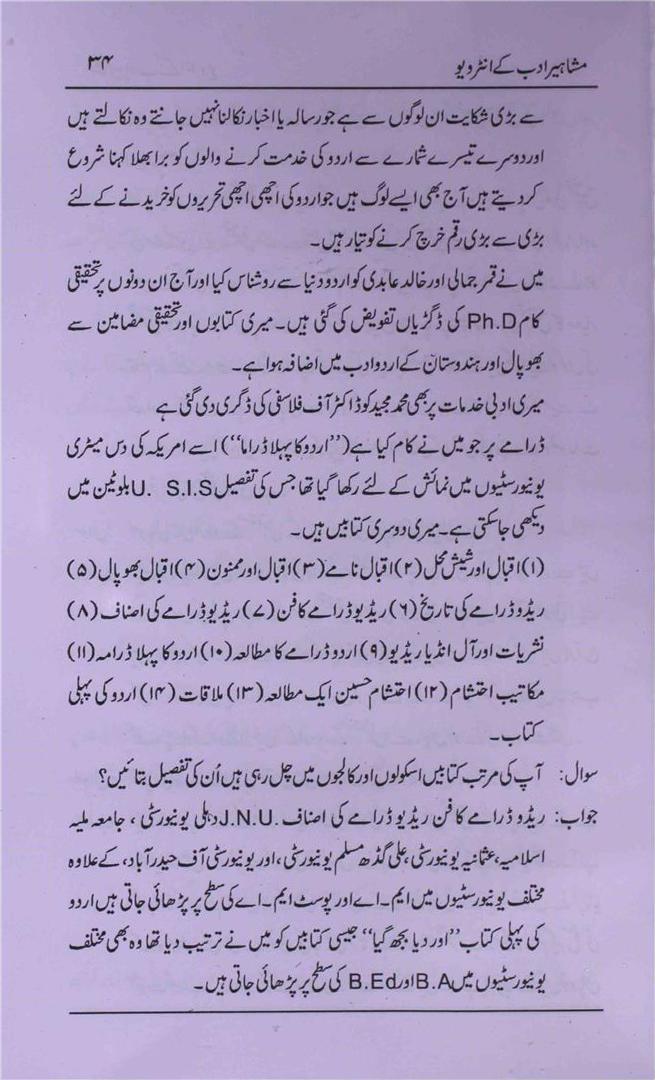 مشاہیر ادب کے انٹرویو
۳۴
سے بڑی شکایت ان لوگوں سے ہے جو رسالہ یا اخبار نکالنا نہیں جانتے وہ نکالتے ہیں
اور دوسرے تیسرے شمارے سے اردو کی خدمت کرنے والوں کو برا بھلا کہنا شروع
کر دیتے ہیں آج بھی ایسے لوگ ہیں جو اردو کی اچھی اچھی تحریروں کو خریدنے کے لئے
بڑی سے بڑی رقم خرچ کرنے کو تیار ہیں۔
میں نے قمر جمالی اور خالد عابدی کو اردو دنیا سے روشناس کیا اور آج ان دونوں پر تحقیقی
کام Ph.D کی ڈگریاں تفویض کی گئی ہیں۔ میری کتابوں اور تحقیقی مضامین سے
بھوپال اور ہندوستان کے اردو ادب میں اضافہ ہوا ہے۔
میری ادبی خدمات پر بھی محمد مجید کو ڈاکٹر آف فلاسفی کی ڈگری دی گئی ہے
ڈرامے پر جو میں نے کام کیا ہے (’’اردو کا پہلا ڈراما‘‘) اسے امریکہ کی دس میٹری
یونیورسٹیوں میں نمائش کے لئے رکھا گیا تھا جس کی تفصیل U. S.I.S بلوٹین میں
دیکھی جاسکتی ہے۔ میری دوسری کتابیں ہیں۔
(۱) اقبال اور شیش محل (۲) اقبال نامے (۳) اقبال اور ممنون (۴) اقبال بھوپال (۵)
ریڈو ڈرامے کی تاریخ (۶) ریڈیو ڈرامے کا فن (۷) ریڈیو ڈرامے کی اصناف (۸)
نشریات اور آل انڈیا ریڈیو (۹) اردو ڈرامے کا مطالعہ (۱۰) اردو کا پہلا ڈرامہ (۱۱)
مکاتیب احتشام (۱۲) احتشام حسین ایک مطالعہ (۱۳) ملاقات (۱۴) اردو کی پہلی
کتاب۔
سوال: آپ کی مرتب کتابیں اسکولوں اور کالجوں میں چل رہی ہیں اُن کی تفصیل بتائیں؟
جواب: ریڈو ڈرامے کا فن ریڈیو ڈرامے کی اصناف J.N.U. دہلی یونیورسٹی، جامعہ ملیہ
اسلامیہ، عثمانیہ یونیورسٹی، علی گڈھ مسلم یونیورسٹی، اور یونیورسٹی آف حیدرآباد، کے علاوہ
مختلف یونیورسٹیوں میں ایم۔اے اور پوسٹ ایم۔اے کی سطح پر پڑھائی جاتی ہیں اردو
کی پہلی کتاب ’’اور دیا بجھ گیا‘‘ جیسی کتابیں کو میں نے ترتیب دیا تھا وہ بھی مختلف
یونیورسٹیوں میں B.A اور B.Ed کی سطح پر پڑھائی جاتی ہیں۔